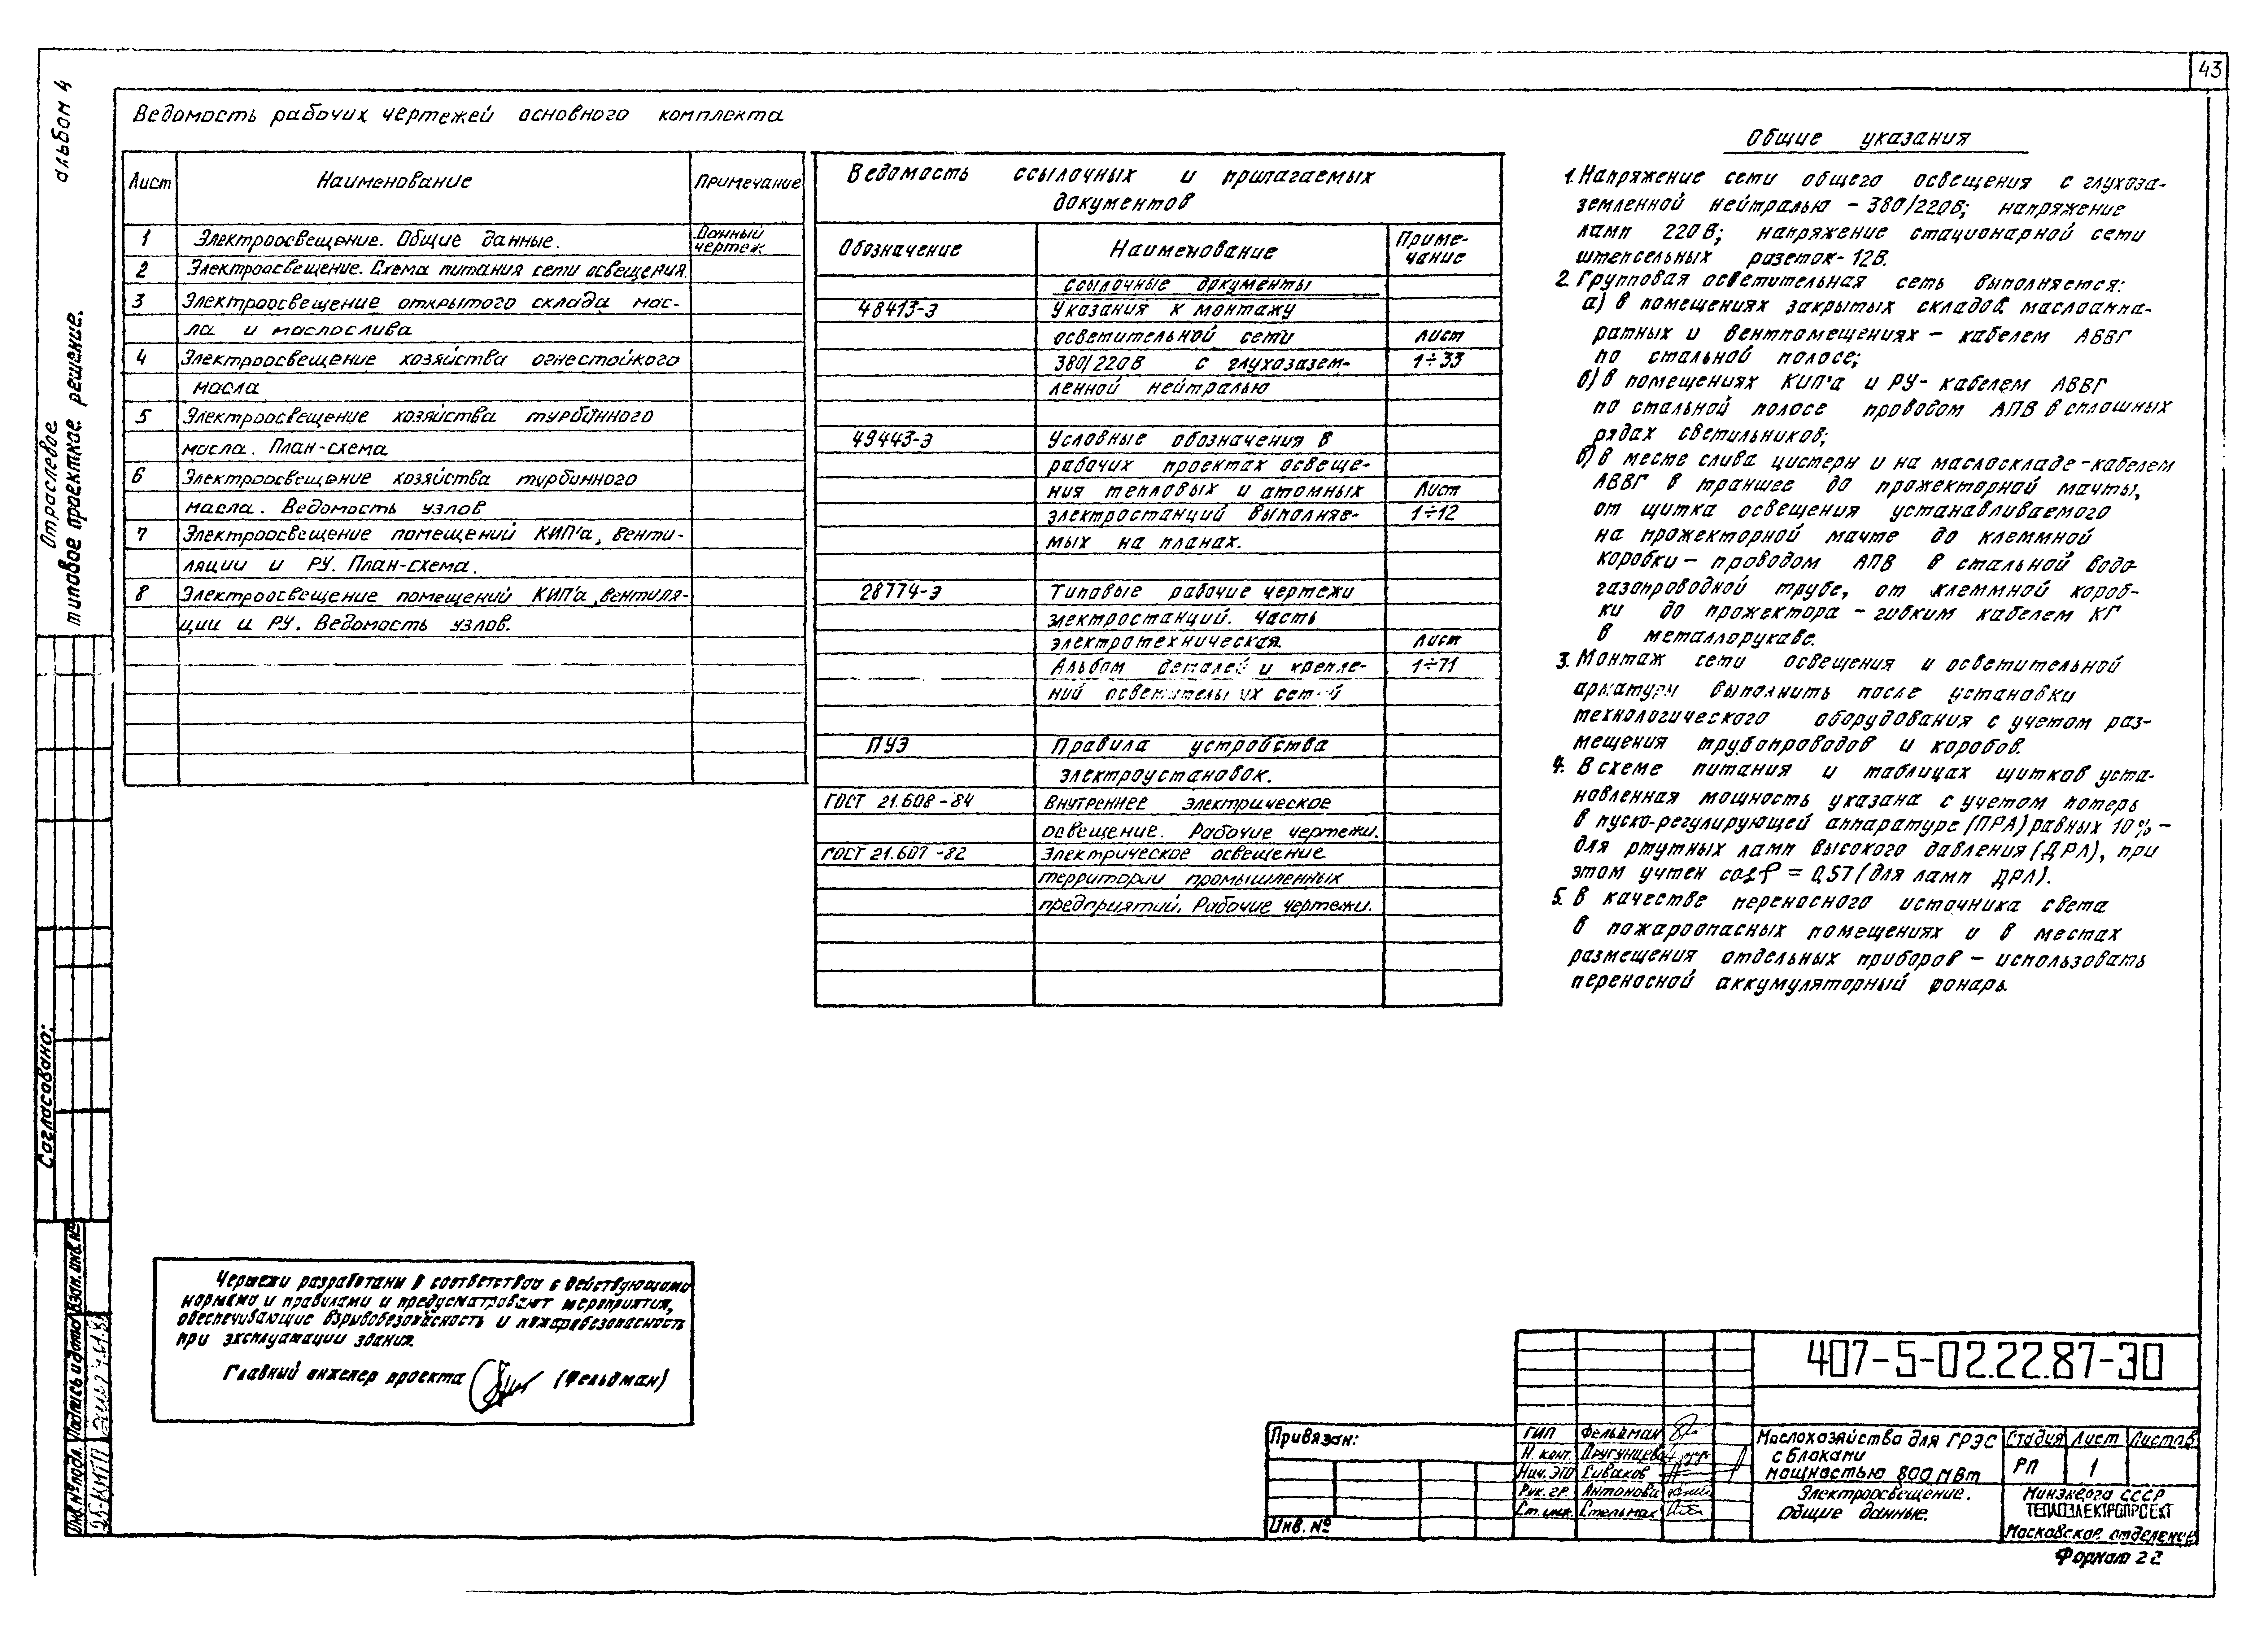 43
альбом 4
Отраслевое
типовое проектное решение.
Согласовано:
Ведомость рабочих чертежей основного комплекта
Лист Наименование Примечание
1 Электроосвещение. Общие данные. Данный чертеж
2 Электроосвещение. Схема питания сети освещения.
3 Электроосвещение открытого склада мас-
ла и маслослива
4 Электроосвещение хозяйства огнестойкого
масла
5 Электроосвещение хозяйства турбинного
масла. План-схема
6 Электроосвещение хозяйства турбинного
масла. Ведомость узлов
7 Электроосвещение помещений КИП'а, венти-
ляции и РУ. План-схема.
8 Электроосвещение помещений КИП'а, вентиля-
ции и РУ. Ведомость узлов.
Ведомость ссылочных и прилагаемых
документов
Обозначение Наименование Приме-
чание
ссылочные документы
48413-Э Указания к монтажу
осветительной сети Лист
380/220В с глухозазем- 1÷33
ленной нейтралью
49443-Э Условные обозначения в
рабочих проектах освеще-
ния тепловых и атомных Лист
электростанций выполняе- 1÷12
мых на планах.
28774-Э Типовые рабочие чертежи
электростанций. Часть
электротехническая. Лист
Альбом деталей и крепле- 1÷71
ний осветительных сетей
ПУЭ Правила устройства
электроустановок.
ГОСТ 21.608-84 Внутреннее электрическое
освещение. Рабочие чертежи.
ГОСТ 21.607-82 Электрическое освещение
территории промышленных
предприятий. Рабочие чертежи.
Общие указания
1. Напряжение сети общего освещения с глухоза-
земленной нейтралью - 380/220В; напряжение
ламп 220В; напряжение стационарной сети
штепсельных розеток-12В.
2. Групповая осветительная сеть выполняется:
а) в помещениях закрытых складов, маслоаппа-
ратных и вентпомещениях - кабелем АВВГ
по стальной полосе;
б) в помещениях КИП'а и РУ- кабелем АВВГ
по стальной полосе проводом АПВ в сплошных
рядах светильников;
в) в месте слива цистерн и на маслоскладе-кабелем
АВВГ в траншее до прожекторной мачты,
от щитка освещения устанавливаемого
на прожекторной мачте до клеммной
коробки - проводом АПВ в стальной водо-
газопроводной трубе, от клеммной короб-
ки до прожектора - гибким кабелем КГ
в металлорукаве.
3. Монтаж сети освещения и осветительной
арматуры выполнить после установки
технологического оборудования с учетом раз-
мещения трубопроводов и коробов.
4. В схеме питания и таблицах щитков уста-
новленная мощность указана с учетом потерь
в пуско-регулирующей аппаратуре (ПРА) равных 10% -
для ртутных ламп высокого давления (ДРЛ), при
этом учтен cos φ = 0,57 (для ламп ДРЛ).
5. В качестве переносного источника света
в пожароопасных помещениях и в местах
размещения отдельных приборов - использовать
переносной аккумуляторный фонарь
Чертежи разработаны в соответствии с действующими
нормами и правилами и предусматривают мероприятия,
обеспечивающие взрывобезопасность и пожаробезопасность
при эксплуатации здания.
Главный инженер проекта (Фельдман)
Инв. № подл. Подпись и дата Взам. инв. №
407-5-02.22.87-ЭО
Привязан:
Инв. №
ГИП Фельдман
Н. конт.
Нач. ЭТО Сиваков
Рук. гр. Антонова
Ст. инж. Стельмах
Маслохозяйство для ГРЭС
с блоками
мощностью 800 МВт
Стадия Лист Листов
РП 1
Электроосвещение.
Общие данные.
Минэнерго СССР
ТЕПЛОЭЛЕКТРОПРОЕКТ
Московское отделение
Формат 22